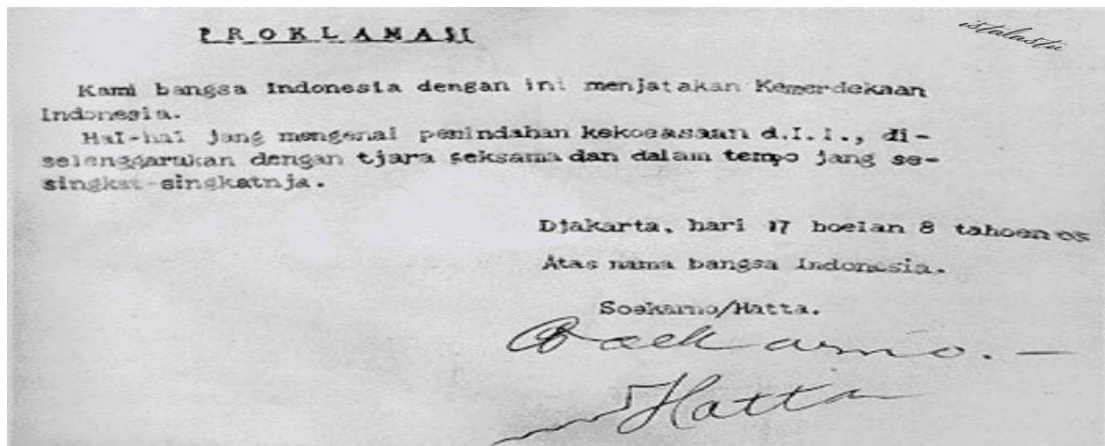 PROKLAMASI
Kami bangsa Indonesia dengan ini menjatakan Kemerdekaan
Indonesia.
Hal-hal jang mengenai pemindahan kekoeasaan d.l.l., di-
selenggarakan dengan tjara seksama dan dalam tempo jang se-
singkat-singkatnja.
Djakarta, hari 17 boelan 8 tahoen 05
Atas nama bangsa Indonesia.
Soekarno/Hatta.
Soekarno.
Hatta